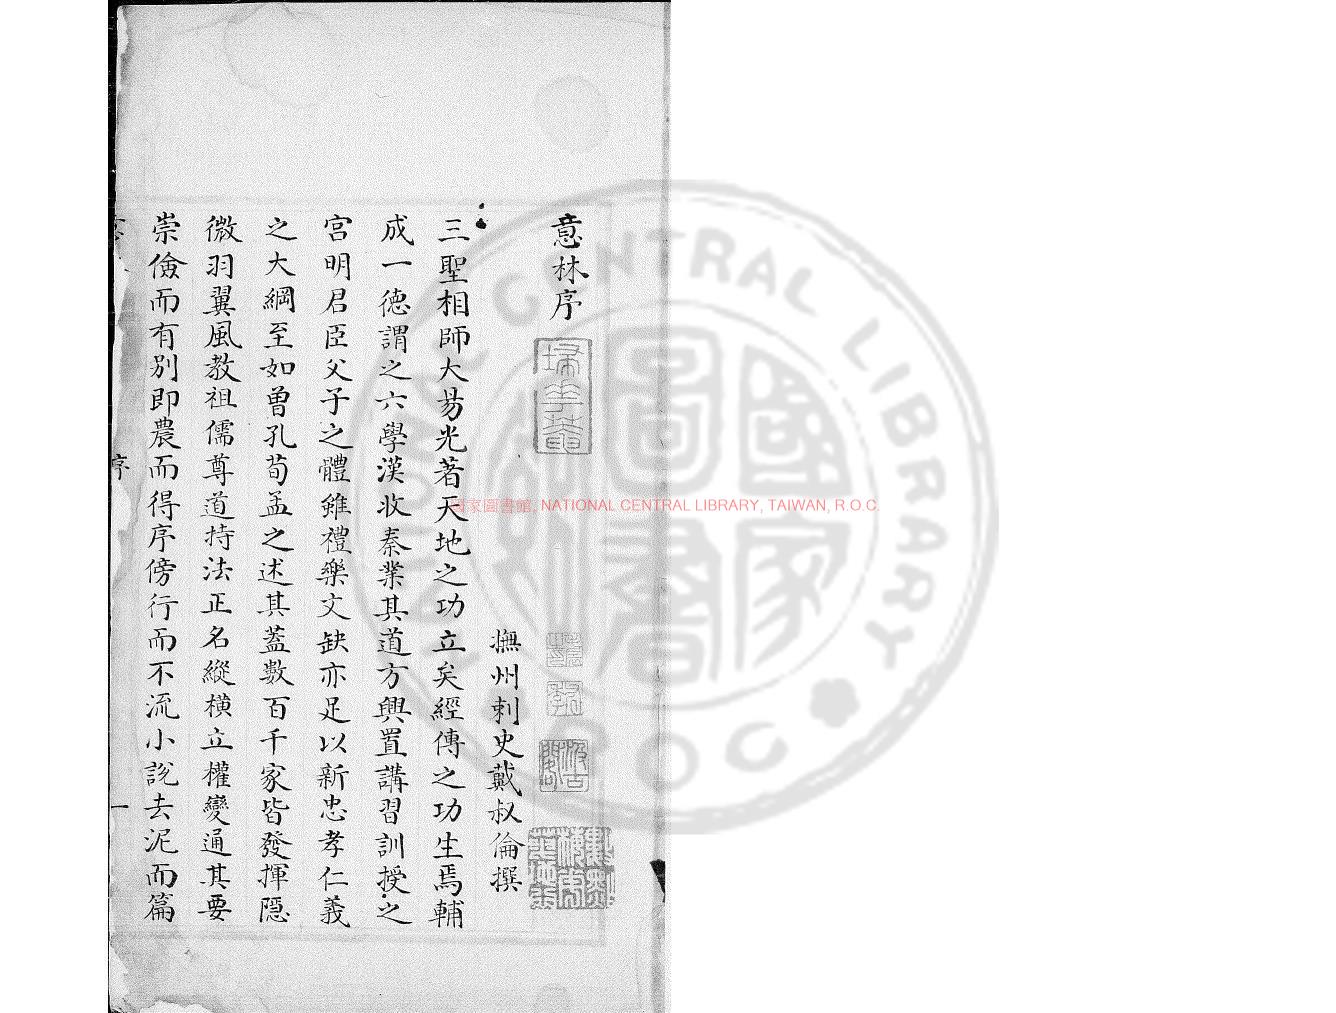 意林序
撫州刺史戴叔倫撰
三聖相師大易光著天地之功立矣經傳之功生焉輔
成一德謂之六學漢收秦業其道方興置講習訓授之
宮明君臣父子之體雖禮樂文缺亦足以新忠孝仁義
之大綱至如曾孔荀孟之述其蓋數百千家皆發揮隱
微羽翼風教祖儒尊道持法正名縱橫立權變通其要
崇儉而有別即農而得序傍行而不流小說去泥而篇
序
一
國家圖書館, NATIONAL CENTRAL LIBRARY, TAIWAN, R.O.C.
NATIONAL CENTRAL LIBRARY
R.O.C.
國家圖書